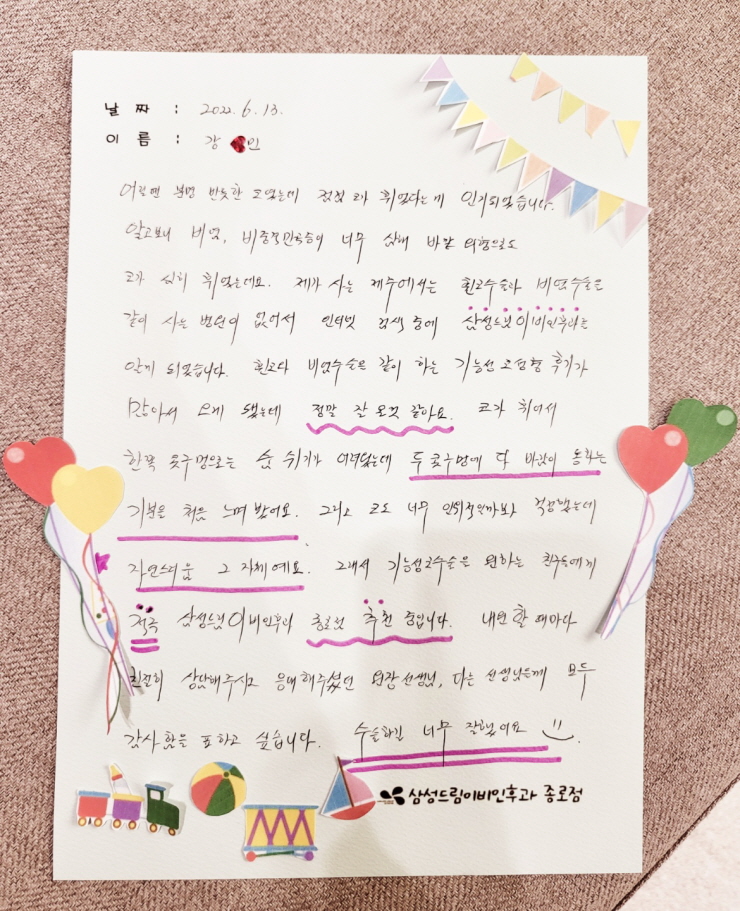 날 짜 : 2022. 6. 13.
이 름 : 강 민
어릴땐 분명 반듯한 코였는데 점점 코가 휘었다는게 인지되었습니다.
알고보니 비염, 비중격만곡증이 너무 심해 바깥 외형으로도
코가 심히 휘었는데요. 제가 사는 제주에서는 휜코수술과 비염수술을
같이 사는 병원이 없어서 인터넷 검색 중에 삼성드림이비인후과를
알게 되었습니다. 휜코와 비염수술을 같이 하는 기능성 코성형 후기가
많아서 오게 됐는데 정말 잘 온것 같아요. 코가 휘어서
한쪽 콧구멍으로는 숨 쉬기가 어려웠는데 두 콧구멍에 다 바람이 통하는
기분을 처음 느껴 봤어요. 그리고 코도 너무 인위적일까보아 걱정했는데
자연스러움 그 자체예요. 그래서 기능성코수술을 원하는 친구들에게
적극 삼성드림이비인후과 종로점 추천 중입니다. 내원 할 때마다
친절히 상담해주시고 응대해주셨던 원장선생님, 다른 선생님들께 모두
감사함을 표하고 싶습니다. 수술하길 너무 잘했어요
삼성드림이비인후과 종로점